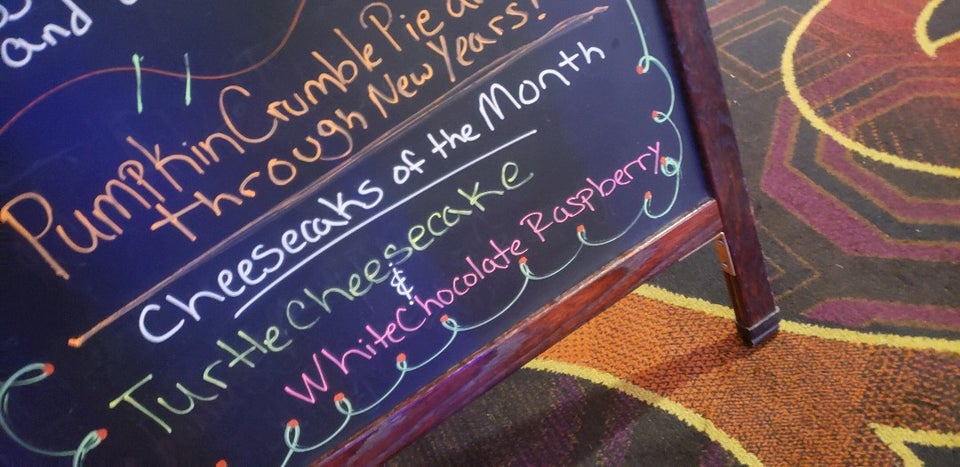 and
Pumpkin Crumble Pie
through New Years!
Cheesecaks of the Month
Turtle Cheesecake
&
White Chocolate Raspberry